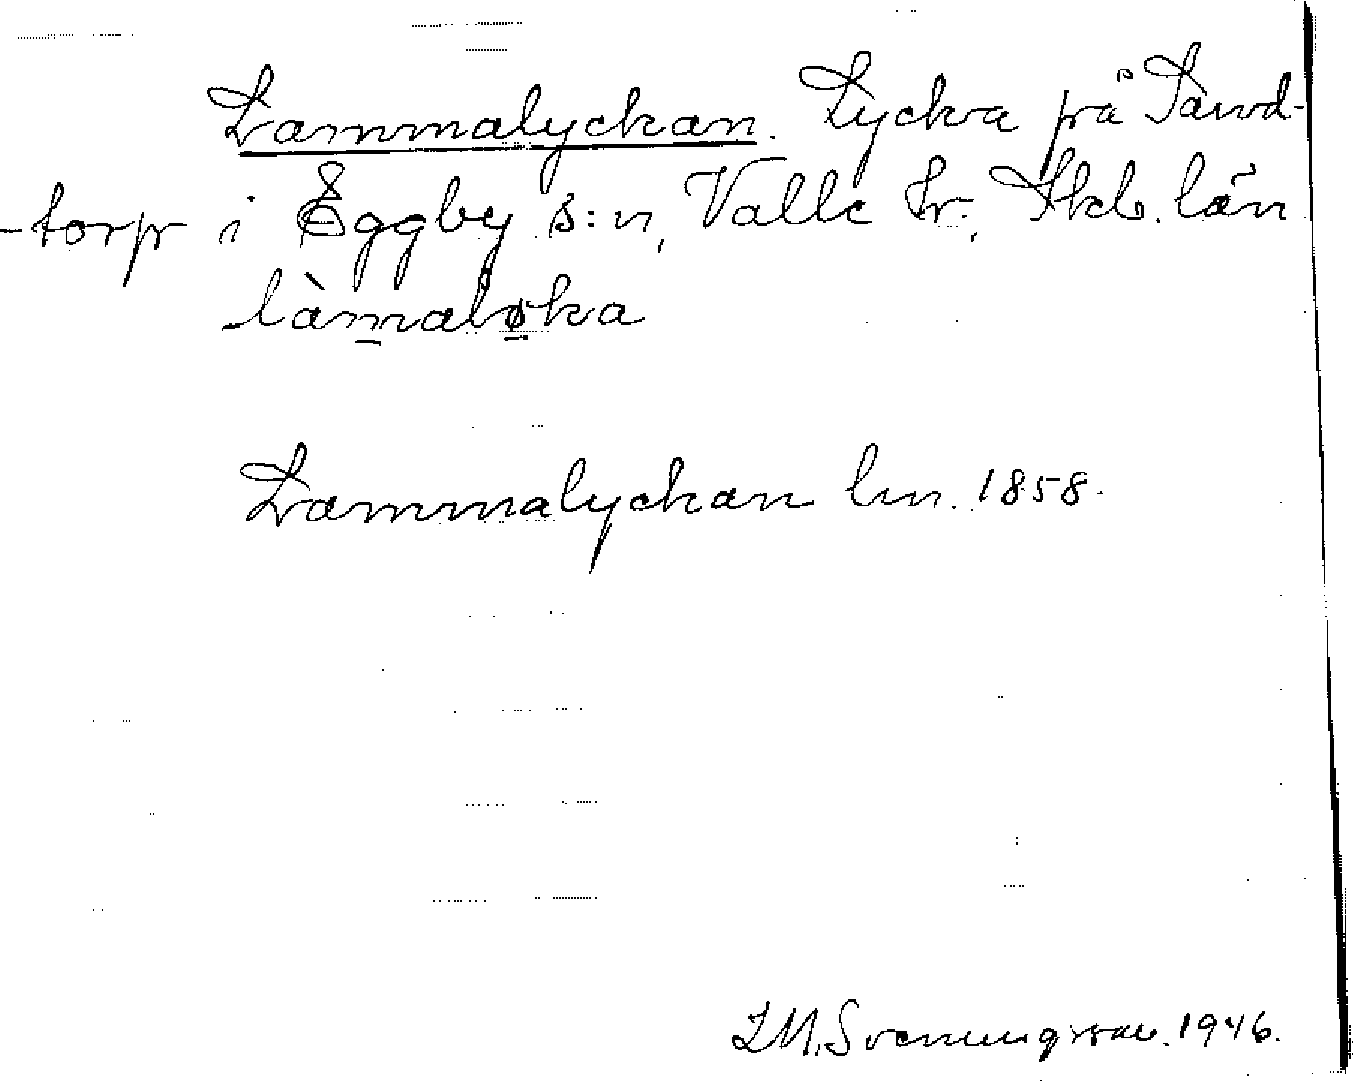 Lammalyckan. Lycka på Sand-
-torp i Eggby s:n, Valle hr., Skb. län
-làmaløka
Lammalyckan lm. 1858.
I.M. Svenungsson. 1946.